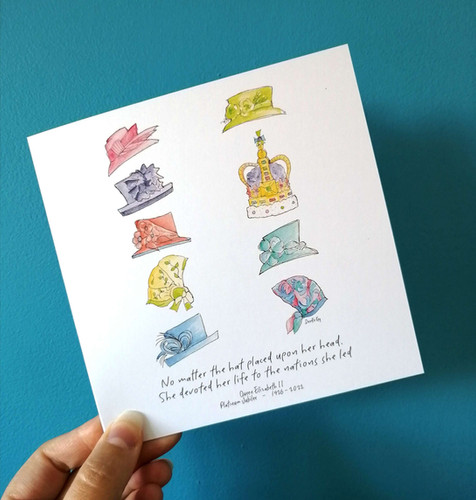 No matter the hat placed upon her head.
She devoted her life to the nations she led
Queen Elizabeth II
Platinum Jubilee - 1926 - 2022